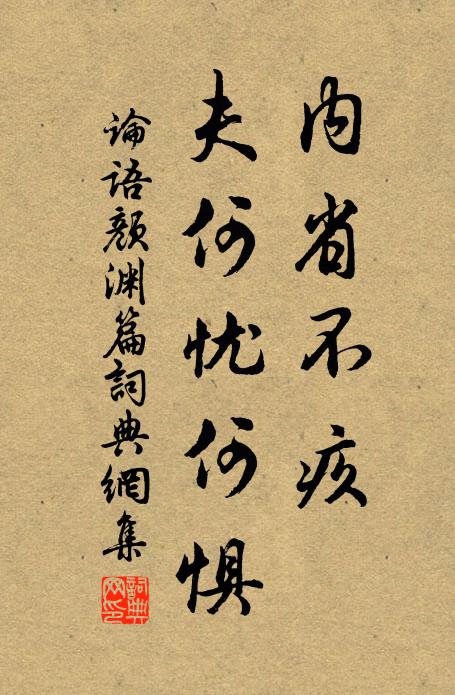 内省不疚
夫何忧何惧
论语颜渊篇词典網集
词典
网印